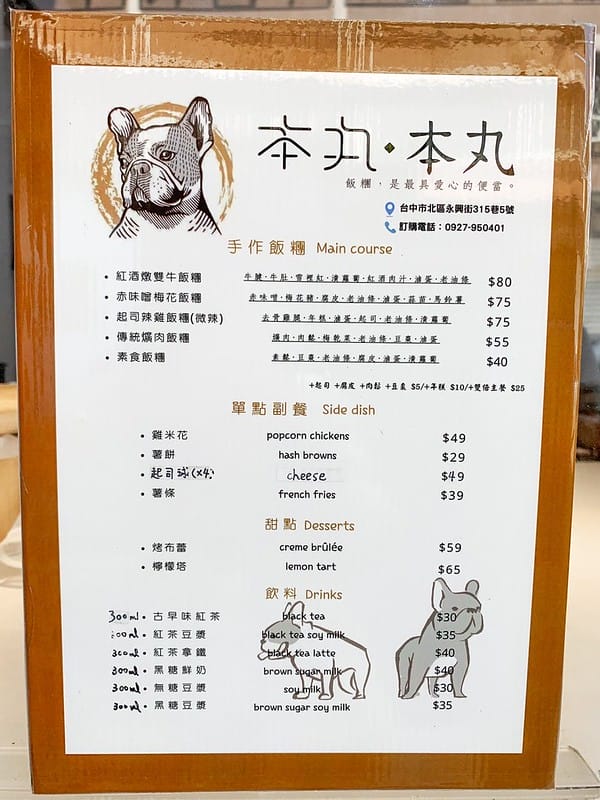 本丸·本丸
飯糰，是最具愛心的便當。
台中市北區永興街315巷5號
訂購電話：0927-950401
手作飯糰 Main course
• 紅酒燉雙牛飯糰 牛腱·牛肚·雪裡紅·漬蘿蔔·紅酒肉汁·滷蛋·老油條 $80
• 赤味噌梅花飯糰 赤味噌·梅花豬·腐皮·老油條·滷蛋·蒜苗·馬鈴薯 $75
• 起司辣雞飯糰(微辣) 去骨雞腿·年糕·滷蛋·起司·老油條·漬蘿蔔 $75
• 傳統爌肉飯糰 爌肉·肉鬆·梅乾菜·老油條·豆棗·滷蛋 $55
• 素食飯糰 素鬆·豆棗·老油條·腐皮·滷蛋·漬蘿蔔 $40
+起司 +腐皮 +肉鬆 +豆棗 $5/+年糕 $10/+雙倍主餐 $25
單點副餐 Side dish
• 雞米花 popcorn chickens $49
• 薯餅 hash browns $29
• 起司球(x4) cheese $49
• 薯條 french fries $39
甜點 Desserts
• 烤布蕾 creme brûlée $59
• 檸檬塔 lemon tart $65
飲料 Drinks
300ml • 古早味紅茶 black tea $30
300ml • 紅茶豆漿 black tea soy milk $35
300ml • 紅茶拿鐵 black tea latte $40
300ml • 黑糖鮮奶 brown sugar milk $40
300ml • 無糖豆漿 soy milk $30
300ml • 黑糖豆漿 brown sugar soy milk $35